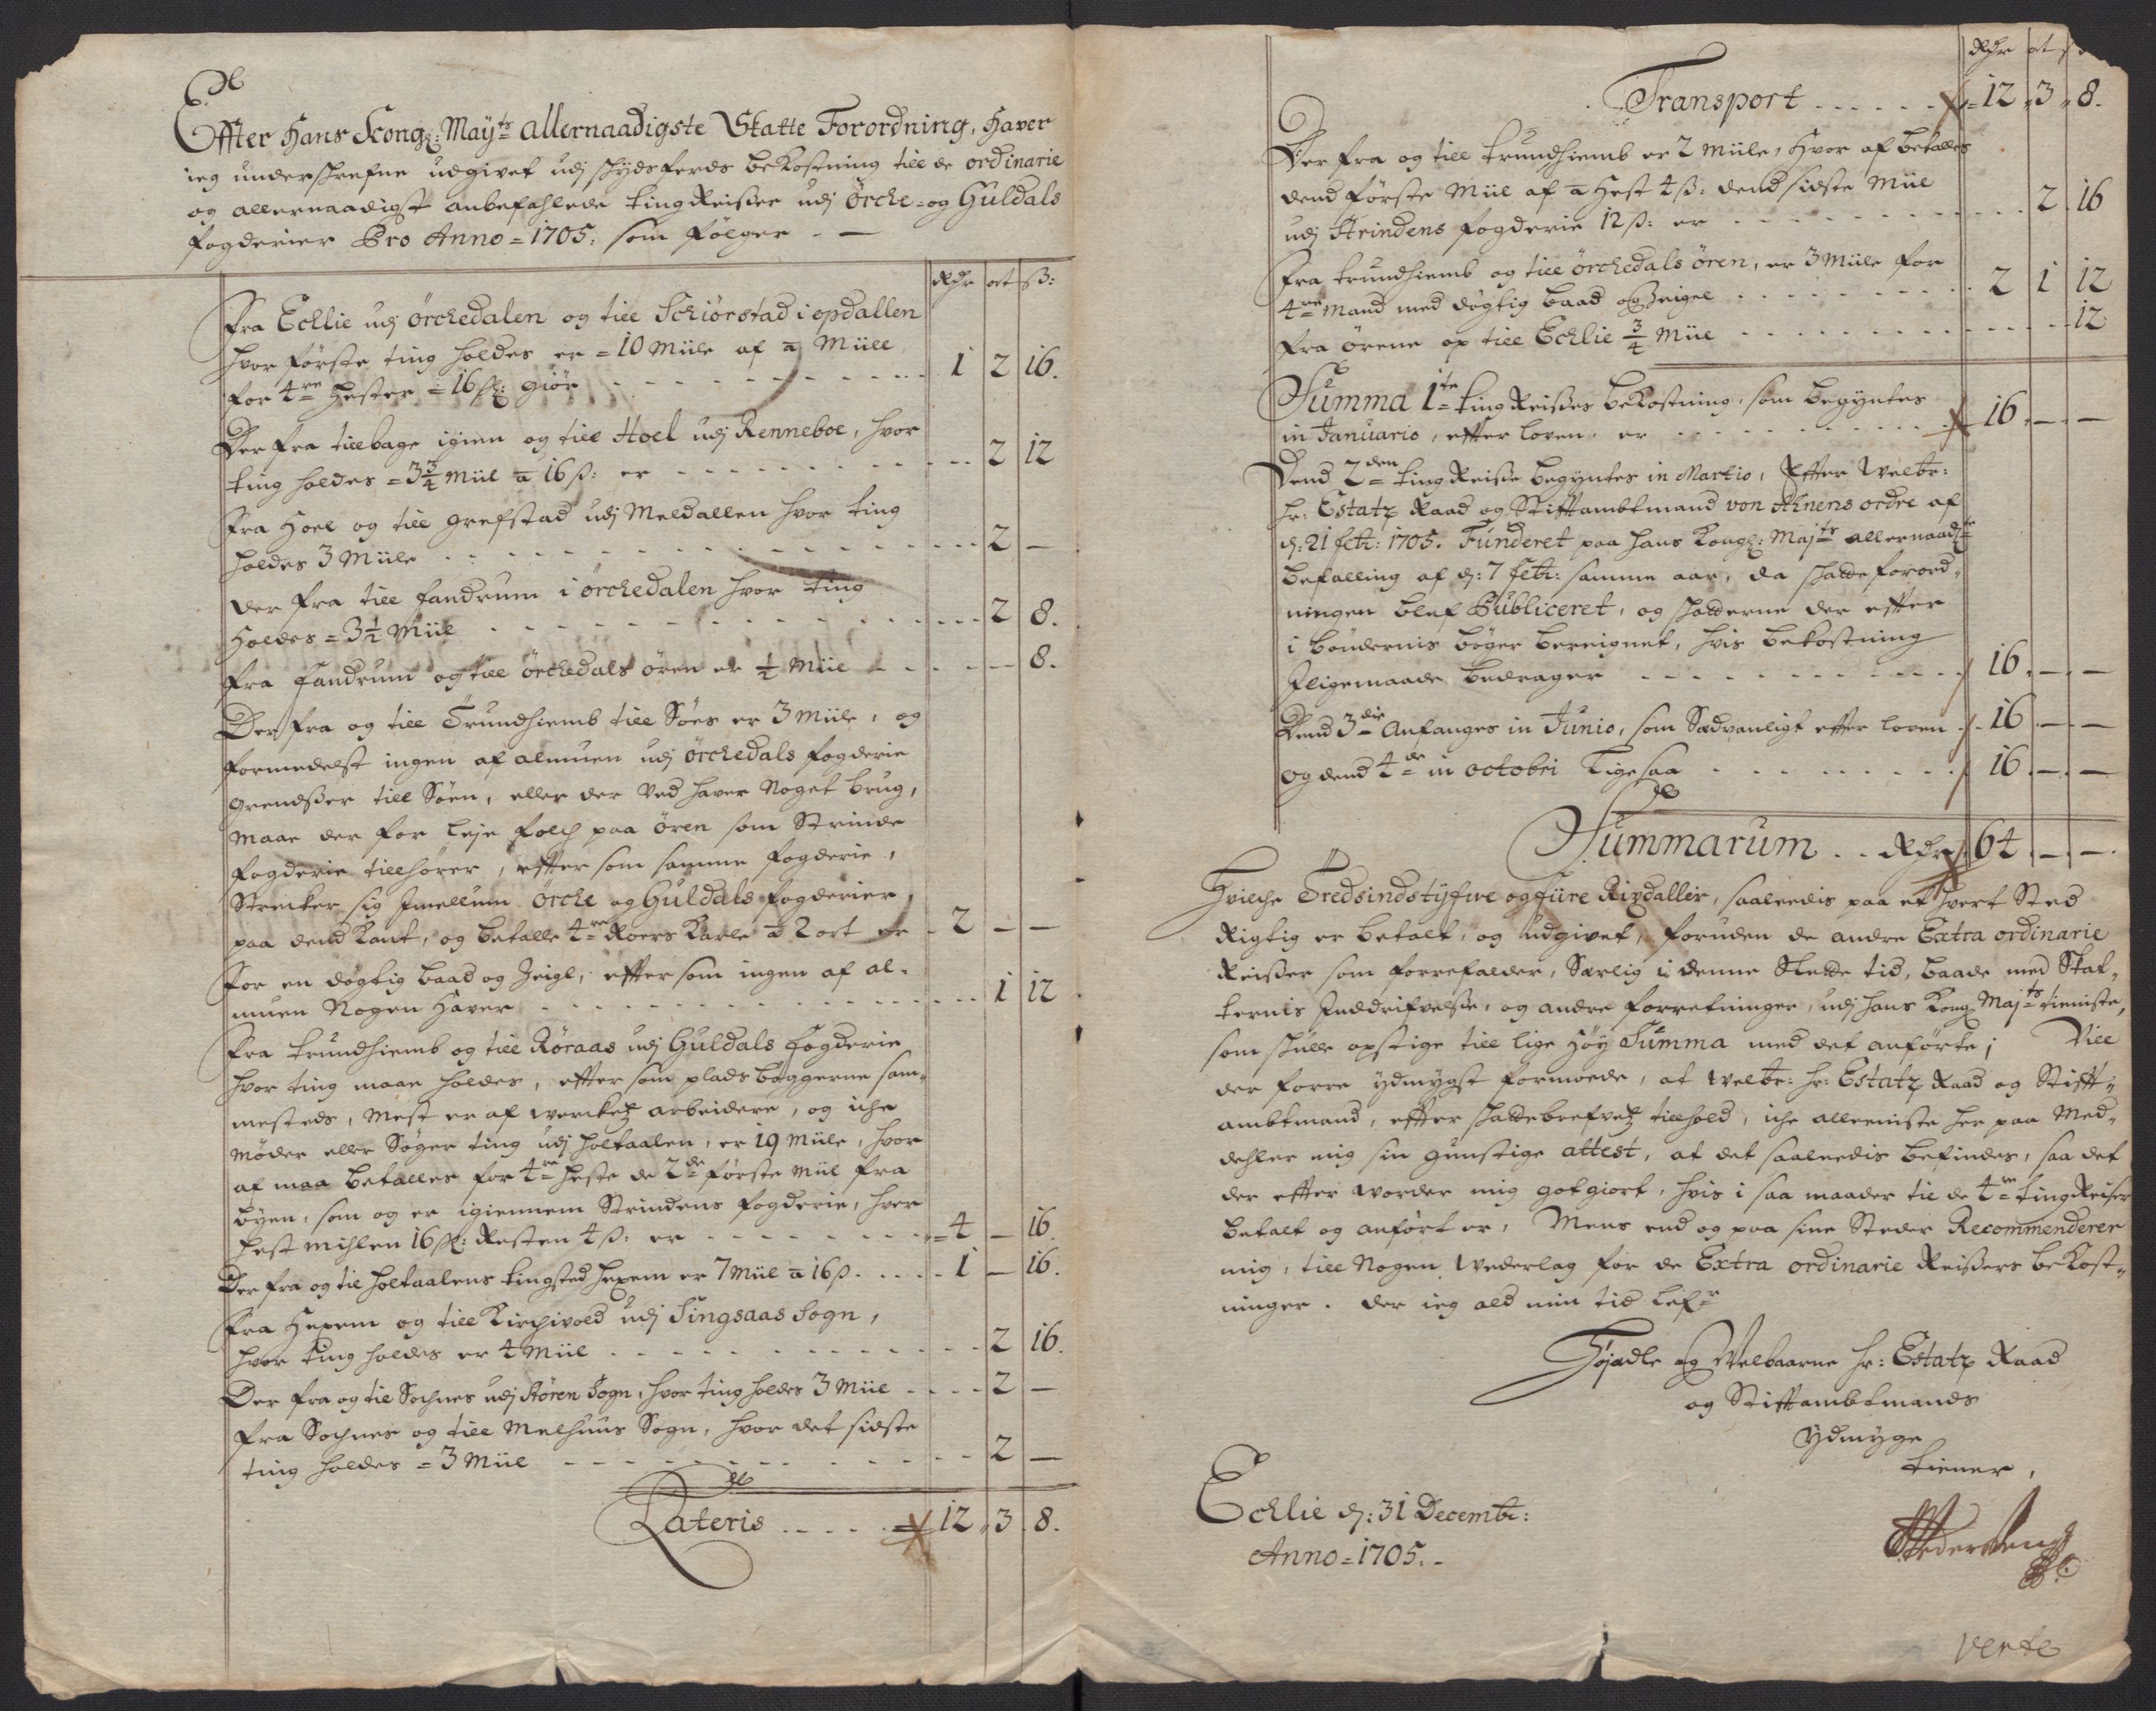 Effter Hans Kongl: Mayts allernaadigste Skatte Forordning, haver
ieg underschrefne udgivet udj schydsferds bekostning till de ordinarie
og allernaadigst anbefahlede ting Reisser udj Örche- og Guldals
fogderier Pro Anno = 1705. som følger
Rdr ort ß:
Fra Echlie udj örchedalen og till Schiörstad i opdallen
hvor første ting holdes er = 10 Miile af a Miill
for 4re Hester = 16 ß: giör 1 2 16.
Der fra tillbage igien og till Hoel udj Renneboe, hvor
ting holdes = 3¾ Miil a 16 ß: er 2 12
Fra Hoel og till grefstad udj Meldallen hvor ting
holdes 3 Miile 2 —
der fra till fandrum i örchedalen hvor ting
Holdes = 3½ Miil 2 8.
Fra fandrum og till örchedals ören er ½ Miil 8.
Der fra og till Trundhiemb till Søes er 3 Miile, og
formedelst ingen af almuen udj örchedals fogderie
grendsser till Søen, eller der ved haver noget brug,
maae der for leje folch paa ören som Strinde
fogderie tillhører, effter som samme fogderie,
Strecker sig Imellum Örche og Guldals fogderier
paa dend Kant, og betalle 4re Roers Karle a 2 ort er 2 — —
For en døgtig baad og Zeigl, effter som ingen af al-
muen Nogen haver 1 12
Fra trundhiemb og till Röraas udj Guldals fogderie
hvor ting maae holdes, effter som plads böggerne sam-
mesteds, mest er af werckets arbeidere, og iche
møder eller Søger ting udj holtaalen, er 19 Miile, hvor
af maa betalles for 4re heste de 2de første Miil fra
byen, som og er igiennem Strindens fogderie, hver
hest mihlen 16 ß: Resten 4 ß: er 4 — 16.
Der fra og til holtaalens tingsted hexem er 7 Miil a 16 ß 1 — 16.
Fra Hexem og till Kirchvold udj Singsaas Sogn,
hvor ting holdes er 4 Miil 2 16.
Der fra og til Sochnes udj Stören Sogn, hvor ting holdes 3 Miil 2 —
Fra Sochnes og till Melhuus Sogn, hvor det sidste
ting holdes = 3 Miil 2 —
Lateris 12 3 8.
Rdr ort ß
Transport 12 3 8.
Der fra og till trundhiemb er 2 Miile, hvor af betalles
dend første Miil af a Hest 4 ß: dend sidste Miil
udj Strindens fogderie 12 ß: er 2 16
Fra trundhiemb og till örchedals ören, er 3 Miile for
4re Mand med døgtig baad og Zeigel 2 1 12
Fra ørene op till Echlie ¾ Miil 12
Summa 1te ting Reises bekostning, som begyntes
in Januario, effter loven, er 16 — —
Dend 2den ting Reise begyntes in Martio, Effter Welbr:
hr: Estatz Raad og Stifftambtmand von Ahnens ordre af
d: 21 febr: 1705. Funderet paa hans Kongl: Majts allernaadgste
befalling af d: 7 febr: samme aar, da skatteforord-
ningen blef Publiceret, og skatterne der effter
i bøndernis böger bereignet, hvis bekostning
Iligemaade bedrager 16 — —
Dend 3die Anfanges in Junio, som Sædvanligt effter loven 16 — —
og dend 4de in octobri Ligesaa 16 — —
Summarum Rdr 64 — —
Hvilche Tredsindstyfve og fiire Rixdaller, saaledis paa et hvert Sted
Rigtig er betalt, og udgivet, foruden de andre Extra ordinarie
Reisser som forrefalder, Særlig i denne Stædse tid, baade med Skat-
ternis Inddrifvelse, og andre forretninger, udj hans Kongl Majts tieniste,
som skulle opstige till lige høy Summa med det anførte; Vill
der forre ydmygst formoede, at Welbr: hr: Estatz Raad og Stifft-
ambtmand, effter skattebrefvetz tillhold, iche alleeniste her paa Med-
dehler mig sin gunstige attest, at det saaledis befindes, saa det
der effter vorder mig gotgiort, hvis i saa maader til de 4re ting Reiser
betalt og anført er, Mens end og paa sine Steder Recommenderer
mig, till Nogen Wederlag for de Extra ordinarie Reissers bekost-
ninger. der ieg ald min tid lefr
Højædle og Welbaarne hr: Estatz Raad
og Stifftambtmands
ydmyge
tiener,
Echlie d: 31 Decembr:
Anno = 1705.
verte